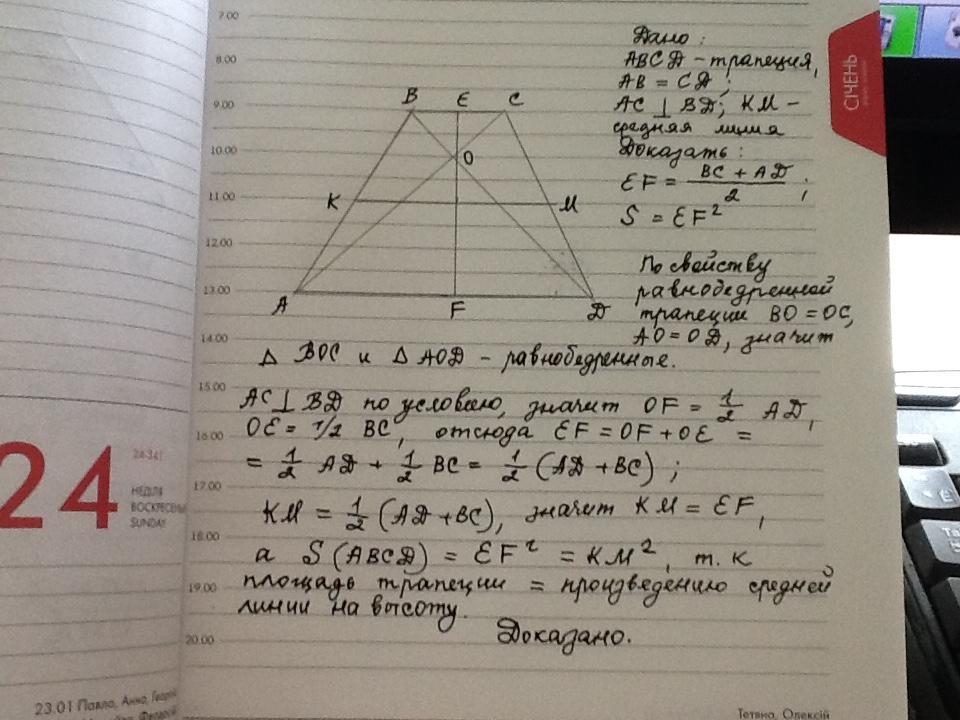 7.00
8.00
9.00
10.00
11.00
12.00
13.00
14.00
15.00
16.00
17.00
18.00
19.00
20.00
СІЧЕНЬ
Дано:
ABCD - трапеция,
AB = CD;
AC ⊥ BD; KM -
средняя линия
Доказать:
EF = (BC + AD)/2;
S = EF²
B E C
O
K M
A F D
По свойству
равнобедренной
трапеции BO = OC,
AO = OD, значит
△ BOC и △ AOD - равнобедренные.
AC ⊥ BD по условию, значит OF = 1/2 AD,
OE = 1/2 BC, отсюда EF = OF + OE =
= 1/2 AD + 1/2 BC = 1/2 (AD + BC);
KM = 1/2 (AD + BC), значит KM = EF,
а S (ABCD) = EF² = KM², т. к
площадь трапеции = произведению средней
линии на высоту.
Доказано.
24
24-341
НЕДІЛЯ
SUNDAY
23.01 Павло, Анна,
Тетяна, Олексій